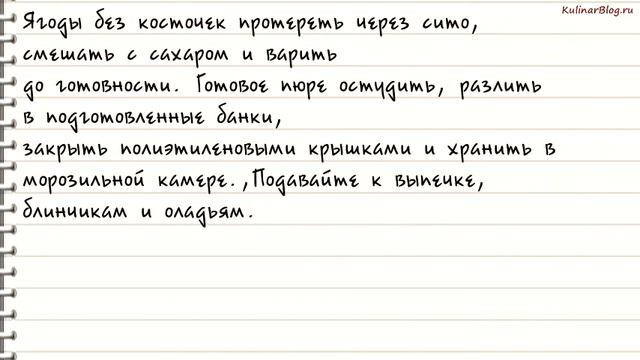 KulinarBlog.ru
Ягоды без косточек протереть через сито,
смешать с сахаром и варить
до готовности. Готовое пюре остудить, разлить
в подготовленные банки,
закрыть полиэтиленовыми крышками и хранить в
морозильной камере.,Подавайте к выпечке,
блинчикам и оладьям.